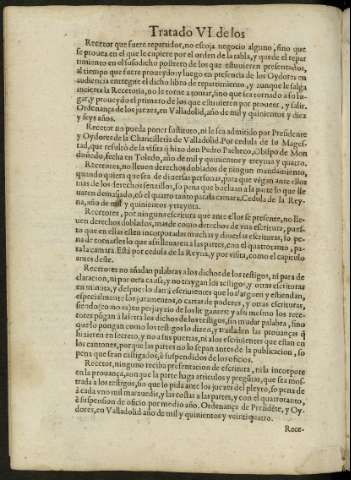 Tratado VI de los
Recetor que fuere repartidor, no escoja negocio alguno, sino que
se prouea en el que le cupiere por el orden de la tabla, y quede el repar
timiento en el susodicho postrero de los que estuuieren presentados,
al tiempo que fuere proueydo: y luego en presencia de los Oydores en
audiencia entregue el dicho libro de repartimiento, y aunque le salga
incierta la Recetoria, no le torne a tomar, sino que sea tornado a su lu-
gar, y proueydo el primero de los que estuuieren por proueer, y salir.
Ordenança de los juezes, en Valladolid, año de mil y quinientos y diez
y seys años.
Recetor no pueda poner sustituto, ni le sea admitido por Presidente
y Oydores de la Chancilleria de Valladolid. Por cedula de su Mages-
tad, que resultó de la visita q̃ hizo don Pedro Pacheco, Obispo de Mon
doñedo, fecha en Toledo, año de mil y quinientos y treynta y quatro.
Recetores, no lleuen derechos doblados de ningun mandamiento,
quando quiera que sea de diuersas personas, para que vsen ellos
mas de los derechos senzillos, so pena que bueluan a la parte lo que lle
uaren demasiado, cõ el quatro tanto para la camara. Cedula de la Rey-
na, año de mil y quinientos y treynta.
Recetores, por ninguna escritura que ante ellos se presente, no lle-
uen derechos doblados, mas de como derechos de vna escritura, pues-
to que en ella esten incorporadas muchas y diuersas escrituras, so pe-
na de tornarles lo que assi lleuaren a las partes, con el quatrotanto, pa-
ra la camara. Está por cedula de la Reyna, y por visita, como el capitulo
antes deste.
Recetores no añadan palabras a los dichos de los testigos, ni para de
claracion, ni por otra causa, y no traygan los testigos, y otras escrituras
en minuta, y despues lo dan à escriuientes que lo alarguen y estiendan,
especialmente los juramentos, o cartas de poderes, y otras escrituras,
siendo (como es) en perjuyzio de los litigantes: y assi mesmo los rece-
tores pongan à la letra los dichos de los testigos, sin mudar palabra, sino
que lo pongan como los testigos lo dizen, y trasladen las prouanças q̃
hizieren en secreto, y no a sus puertas, ni a los escriuientes que estan en
los cantones, porque las partes no lo sepan antes de la publicacion, so
pena que seran castigados, ò suspendidos de los oficios.
Recetor, ninguno reciba presentacion de escritura, ni la incorpore
en la prouança, aunque la parte haga articulos y pregũtas, que sea mos-
trada a los testigos, sin que lo pida ante los juezes del pleyto, so pena de
à cada vno mil marauedis, y las costas a las partes, y con el quatrotanto,
è suspension de oficio por medio año. Ordenança de Presidẽte, y Oy-
dores, en Valladolid año de mil y quinientos y veinti quatro.
Rece-